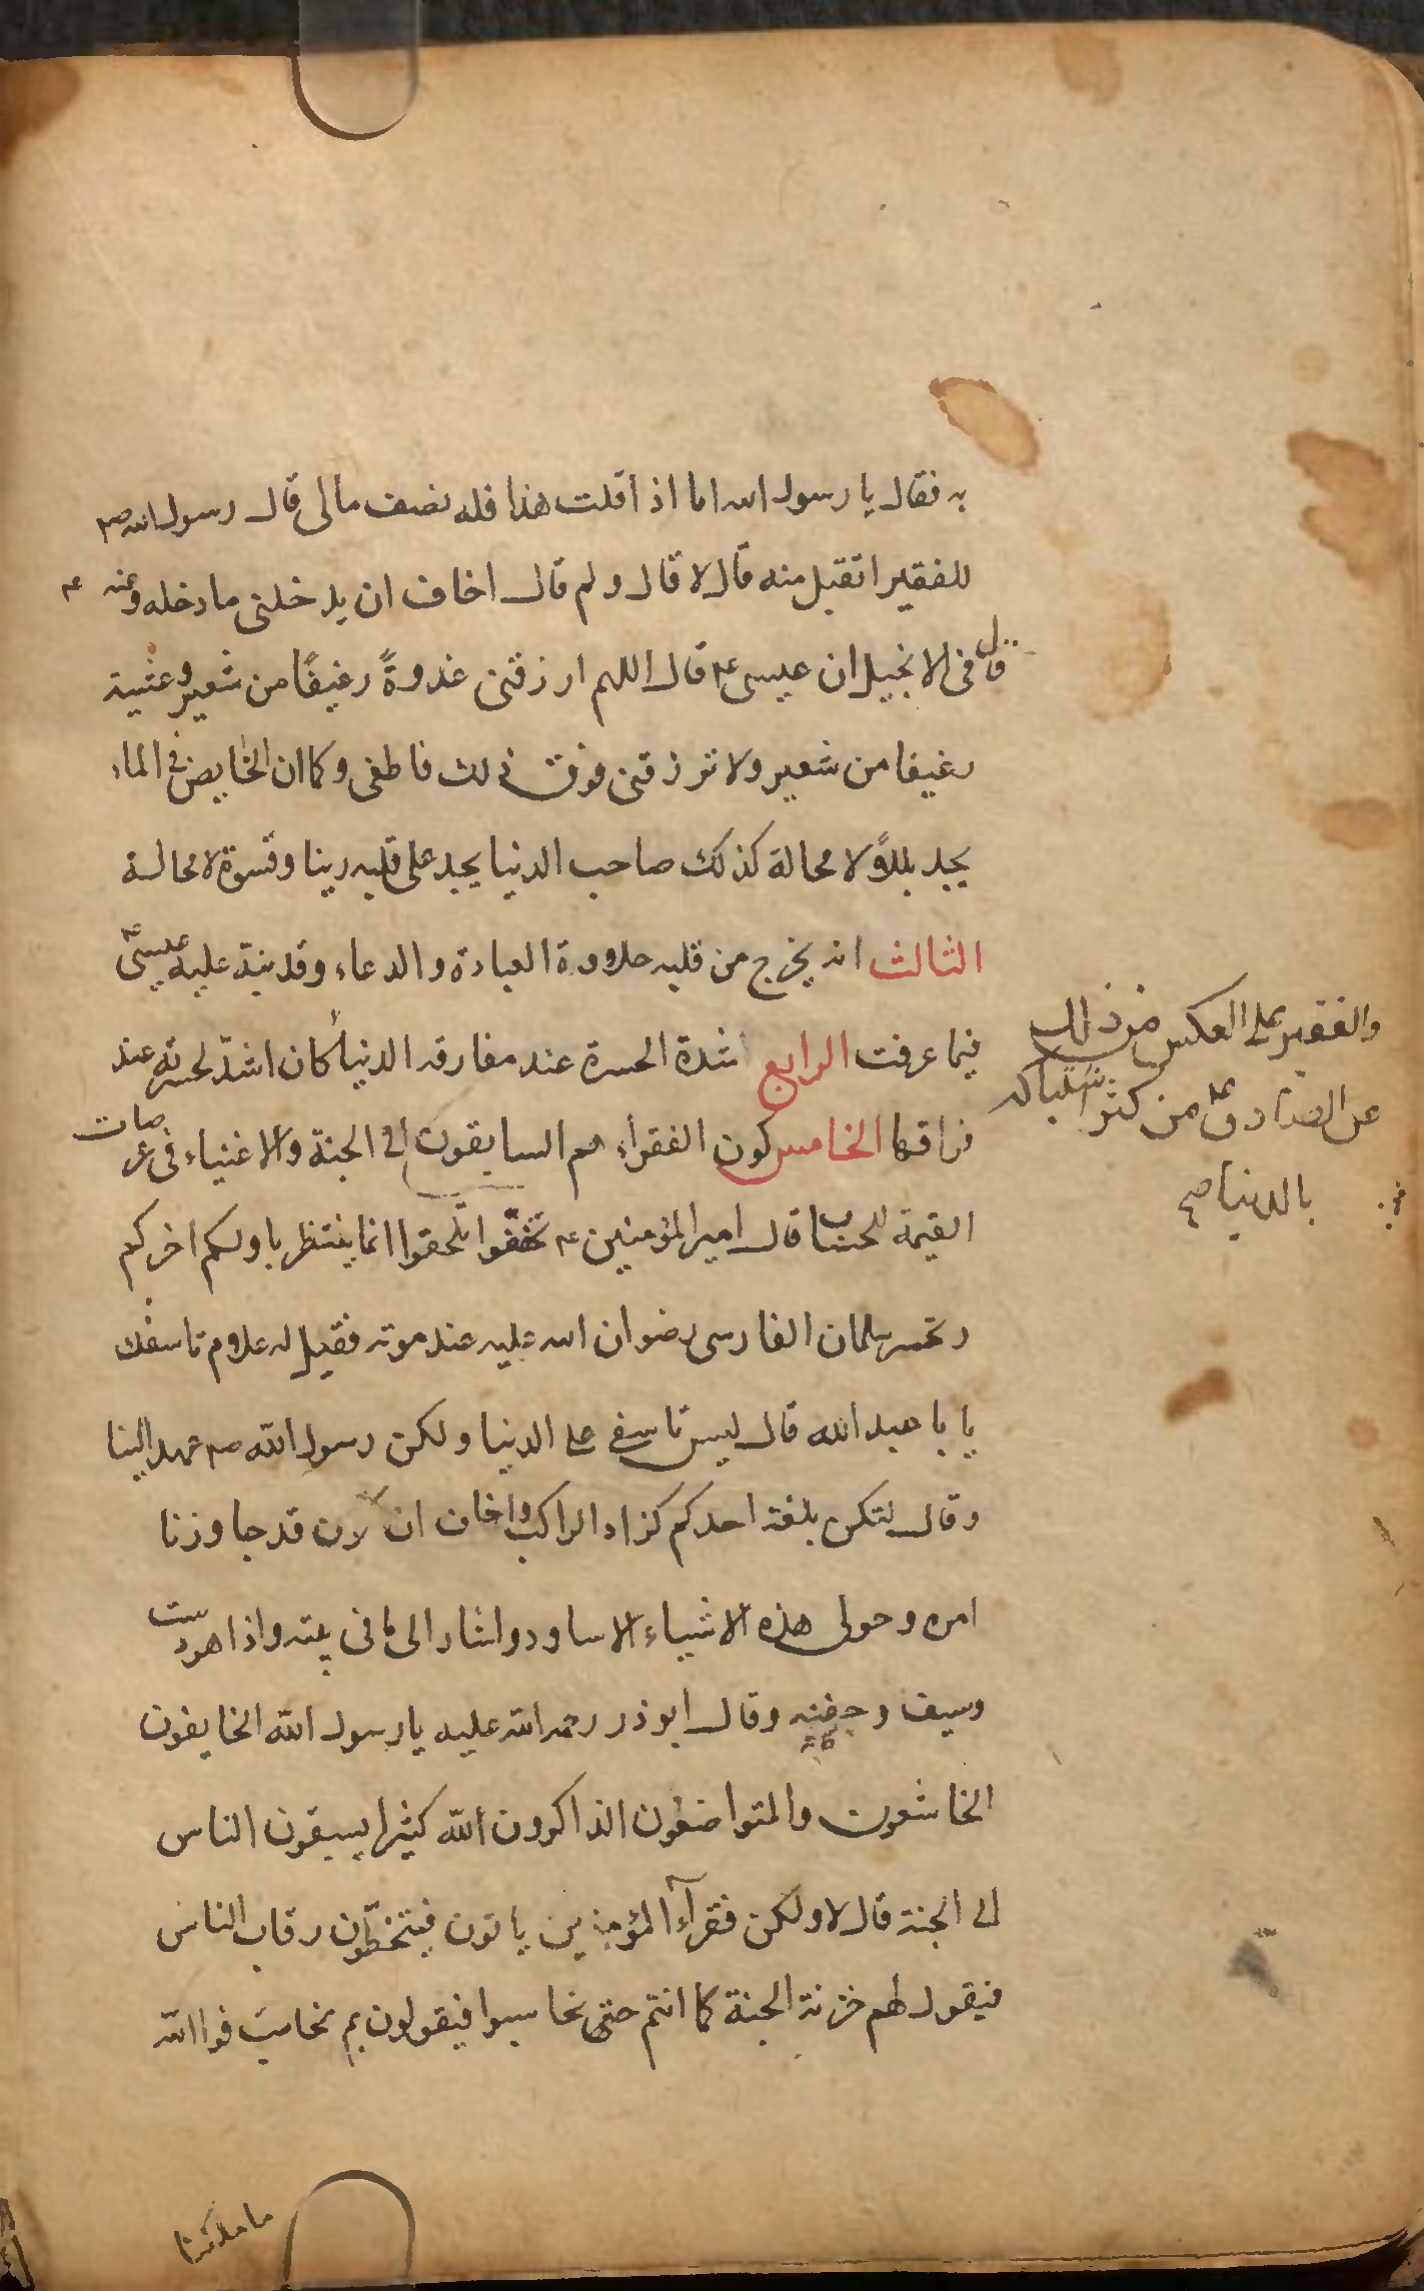 به فقال يا رسول الله اما اذ اقلت هذا فله نصف مالى قال رسول الله ص
للفقير اتقبل منه قال لا قال ولم قال اخاف ان يدخلنى ما دخله وعنه ع
قال فى الانجيل ان عيسى ع قال اللهم ارزقنى غدوةً رغيفًا من شعير وعشية
رغيفا من شعير ولا ترزقنى فوق ذلك فاطغى وكما ان الخايض فى الماء
يجد بللاً لا محالة كذلك صاحب الدنيا يجد على قلبه رينا وقسوة لا محالة
الثالث انه يخرج من قلبه حلاوة العبادة والدعاء وقد نبّه عليه عيسى ع
فيما عرفت الرابع شدة الحسرة عند مفارقه الدنيا كان اشدّ لحسرته عند
فراقها الخامس كون الفقراء هم السابقون الى الجنة والاغنياء فى عرصات
القيمة للحساب قال امير المؤمنين ع تخففوا تلحقوا انما ينتظر باولكم اخركم
وتحسر سلمان الفارسى رضوان الله عليه عند موته فقيل له علام تاسفك
يا با عبد الله قال ليس تاسفى على الدنيا ولكن رسول الله ص عهد الينا
وقال لتكن بلغة احدكم كزاد الراكب واخاف ان نكون قد جاوزنا
امره وحولى هذه الاشياء الاساود واشار الى ما فى بيته واذا هو دست
وسيف وجفنه وقال ابوذر رحمه الله عليه يا رسول الله الخايفون
الخاشعون والمتواضعون الذاكرون الله كثيرا يسبقون الناس
الى الجنة قال لا ولكن فقرآء المؤمنين ياتون فيتخطّون رقاب الناس
فيقول لهم خزنة الجنة كما انتم حتى تحاسبوا فيقولون بم نحاسب فوالله
ما ملكنا
والفقير على العكس من ذلك
عن الصادق ع من كثر اشتباكه
بالدنيا صح